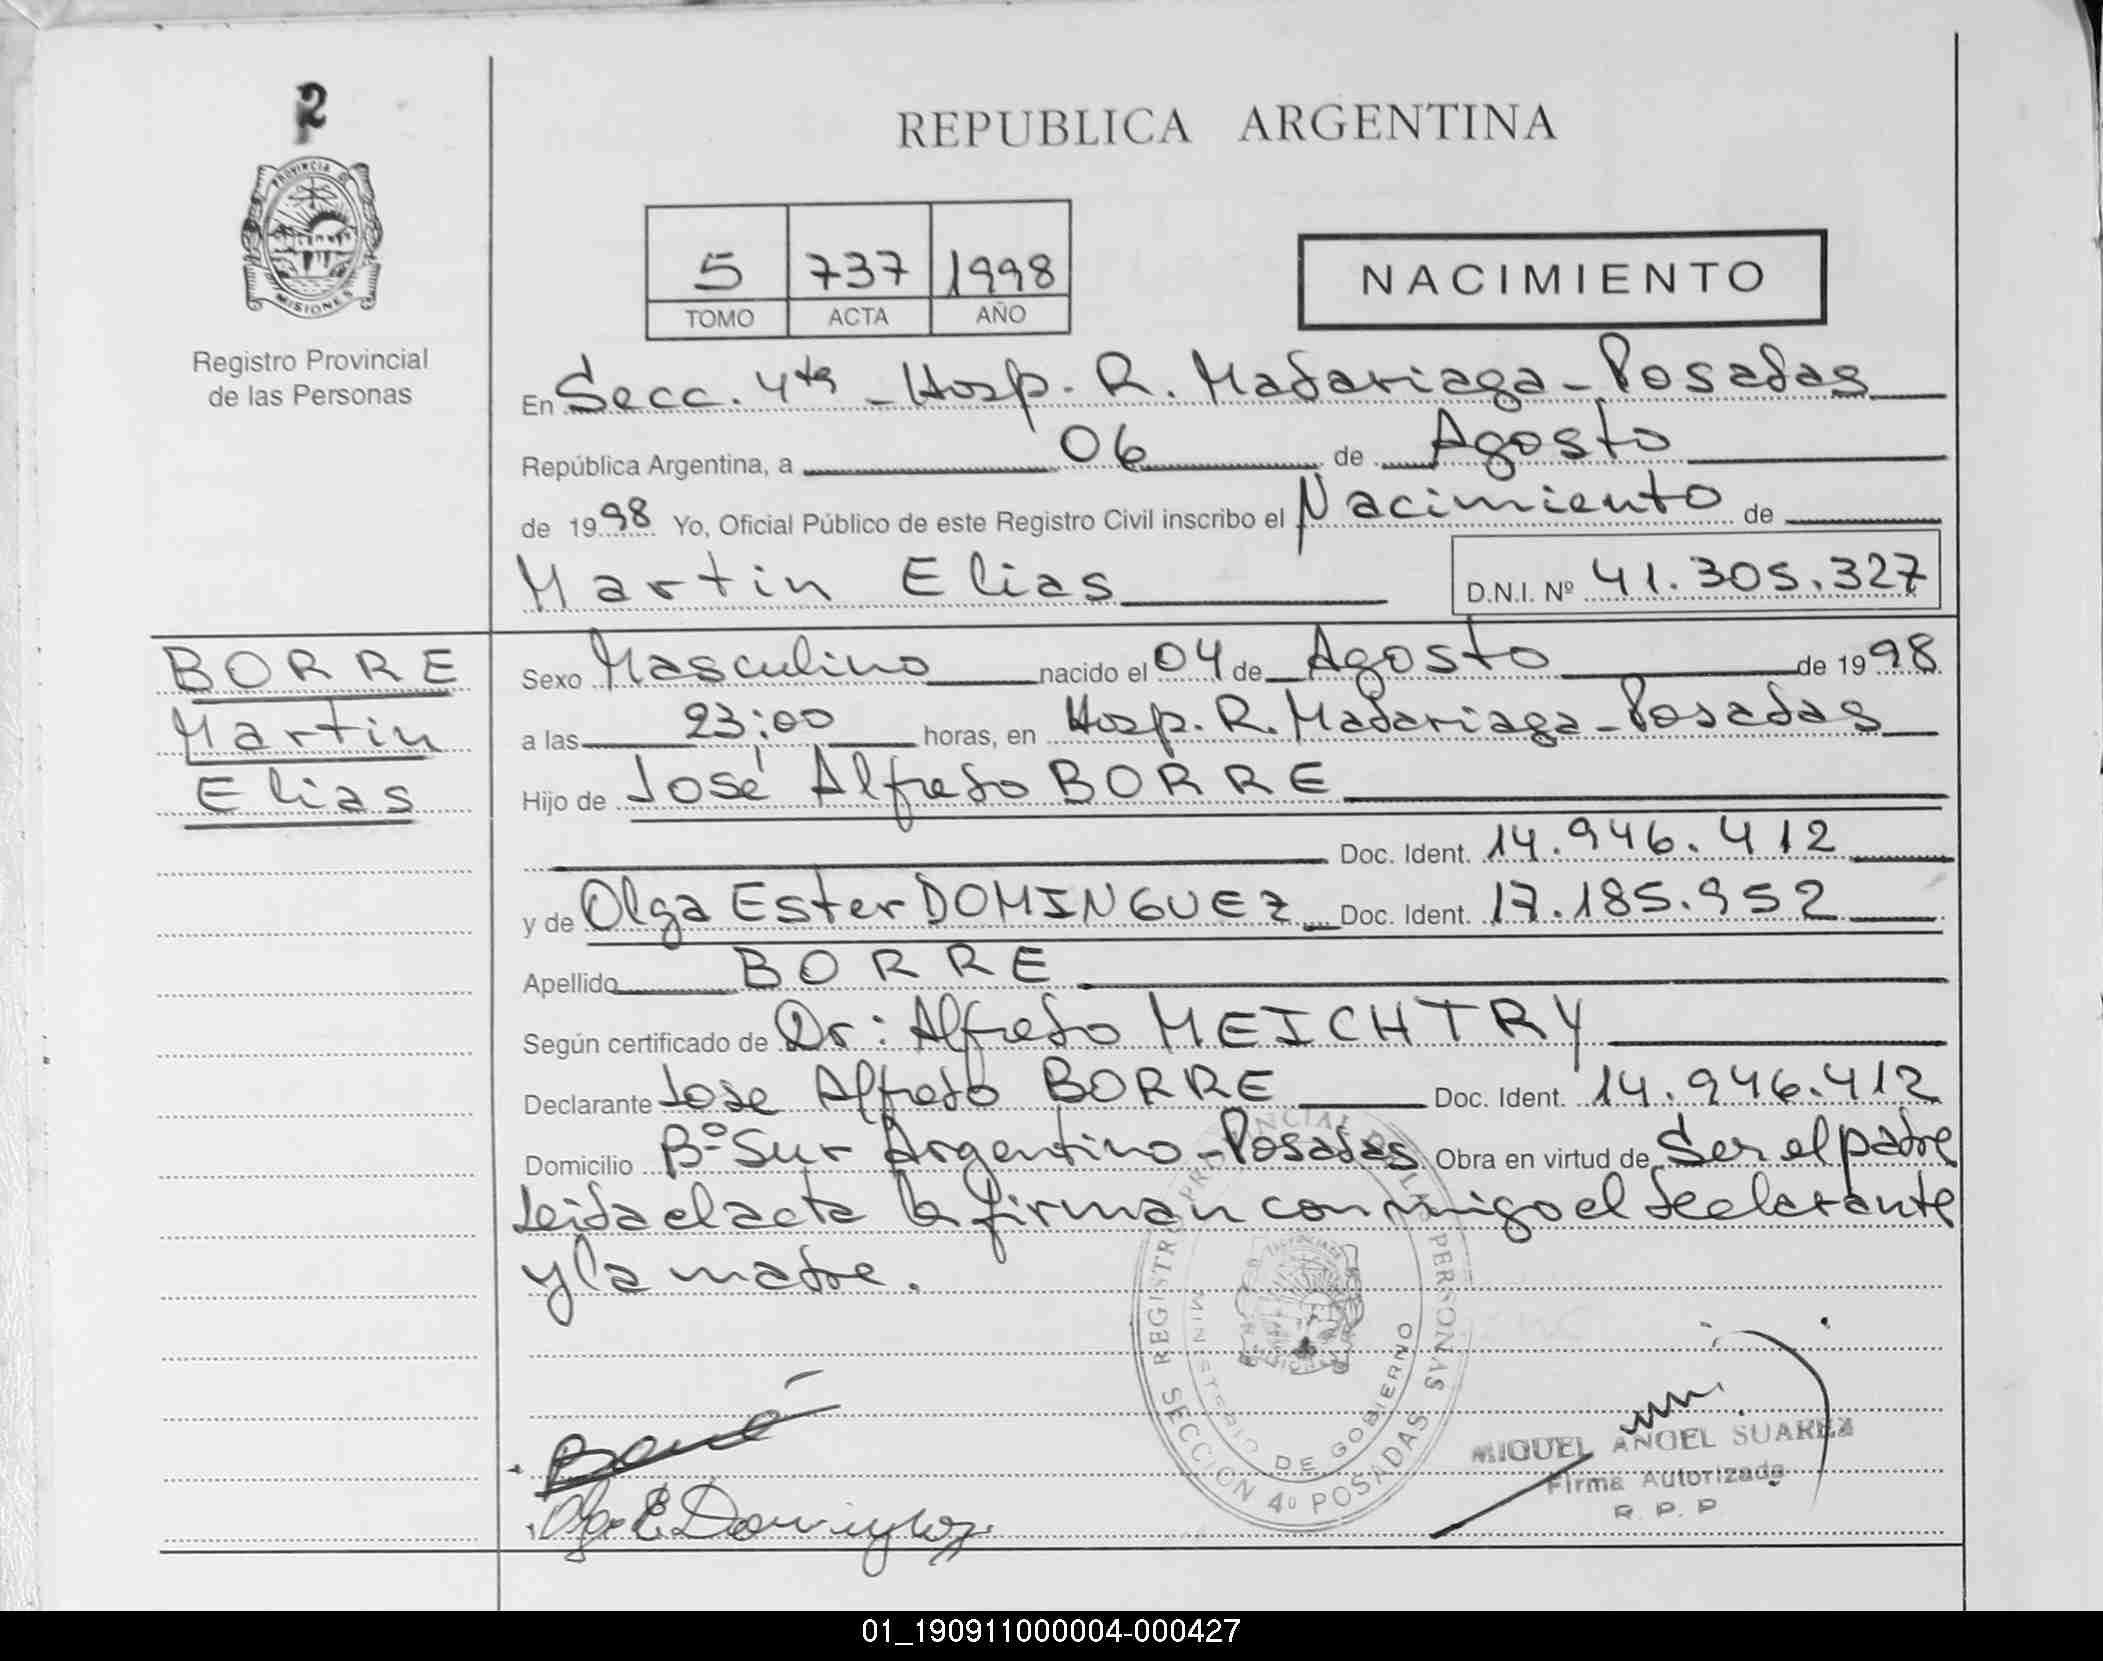 2
PROVINCIA DE
MISIONES
Registro Provincial
de las Personas
REPUBLICA ARGENTINA
5 737 1998
TOMO ACTA AÑO
NACIMIENTO
En Secc. 4ta - Hosp. R. Madariaga - Posadas
República Argentina, a 06 de Agosto
de 1998 Yo, Oficial Público de este Registro Civil inscribo el Nacimiento de
Martin Elias D.N.I. Nº 41.305.327
BORRE
Martin
Elias
Sexo Masculino nacido el 04 de Agosto de 1998
a las 23:00 horas, en Hosp. R. Madariaga - Posadas
Hijo de José Alfredo BORRE
Doc. Ident. 14.946.412
y de Olga Ester DOMINGUEZ Doc. Ident. 17.185.952
Apellido BORRE
Según certificado de Dr: Alfredo MEICHTRY
Declarante Jose Alfredo BORRE Doc. Ident. 14.946.412
Domicilio Bº Sur Argentino - Posadas Obra en virtud de Ser el padre
Leida el acta la firman conmigo el declarante
y la madre.
REGISTRO PROVINCIAL DE LAS PERSONAS
MINISTERIO DE GOBIERNO
SECCION 4º POSADAS
Olga E. Dominguez
MIGUEL ANGEL SUAREZ
Firma Autorizada
R. P. P
01_190911000004-000427